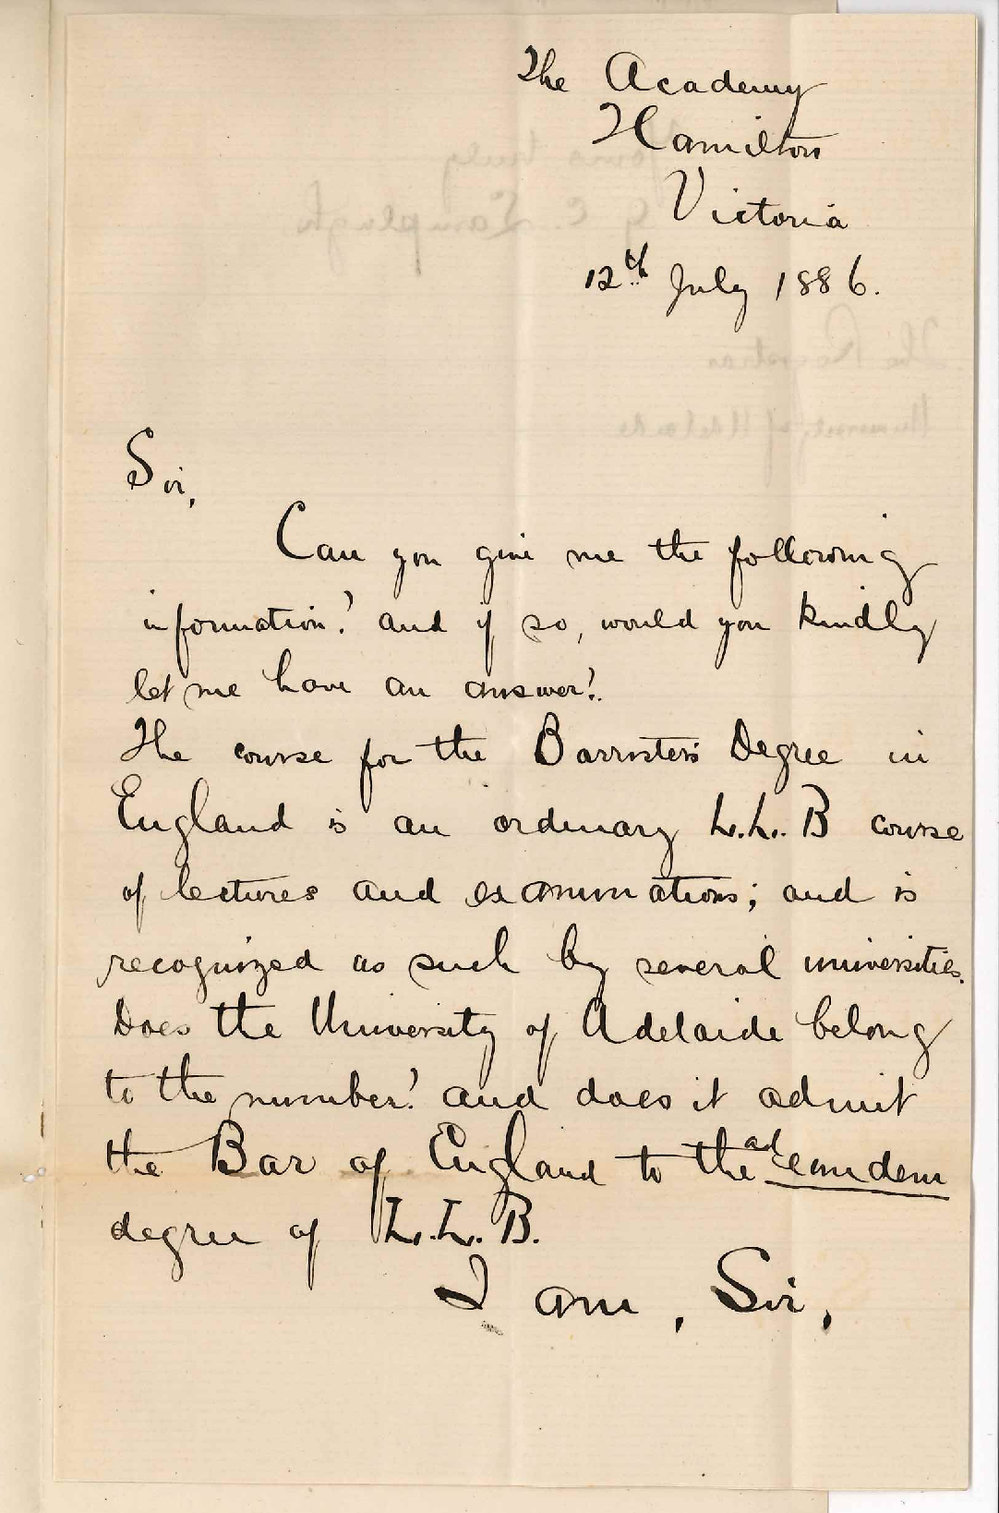 The Academy
Hamilton
Victoria
12th July 1886.
Sir,
Can you give me the following
information? and if so, would you kindly
let me have an answer?
The course for the Barristers Degree in
England is an ordinary L.L.B course
of lectures and examinations; and is
recognized as such by several universities.
Does the University of Adelaide belong
to the number? and does it admit
the Bar of England to the ad eundem
degree of L.L.B.
I am, Sir,